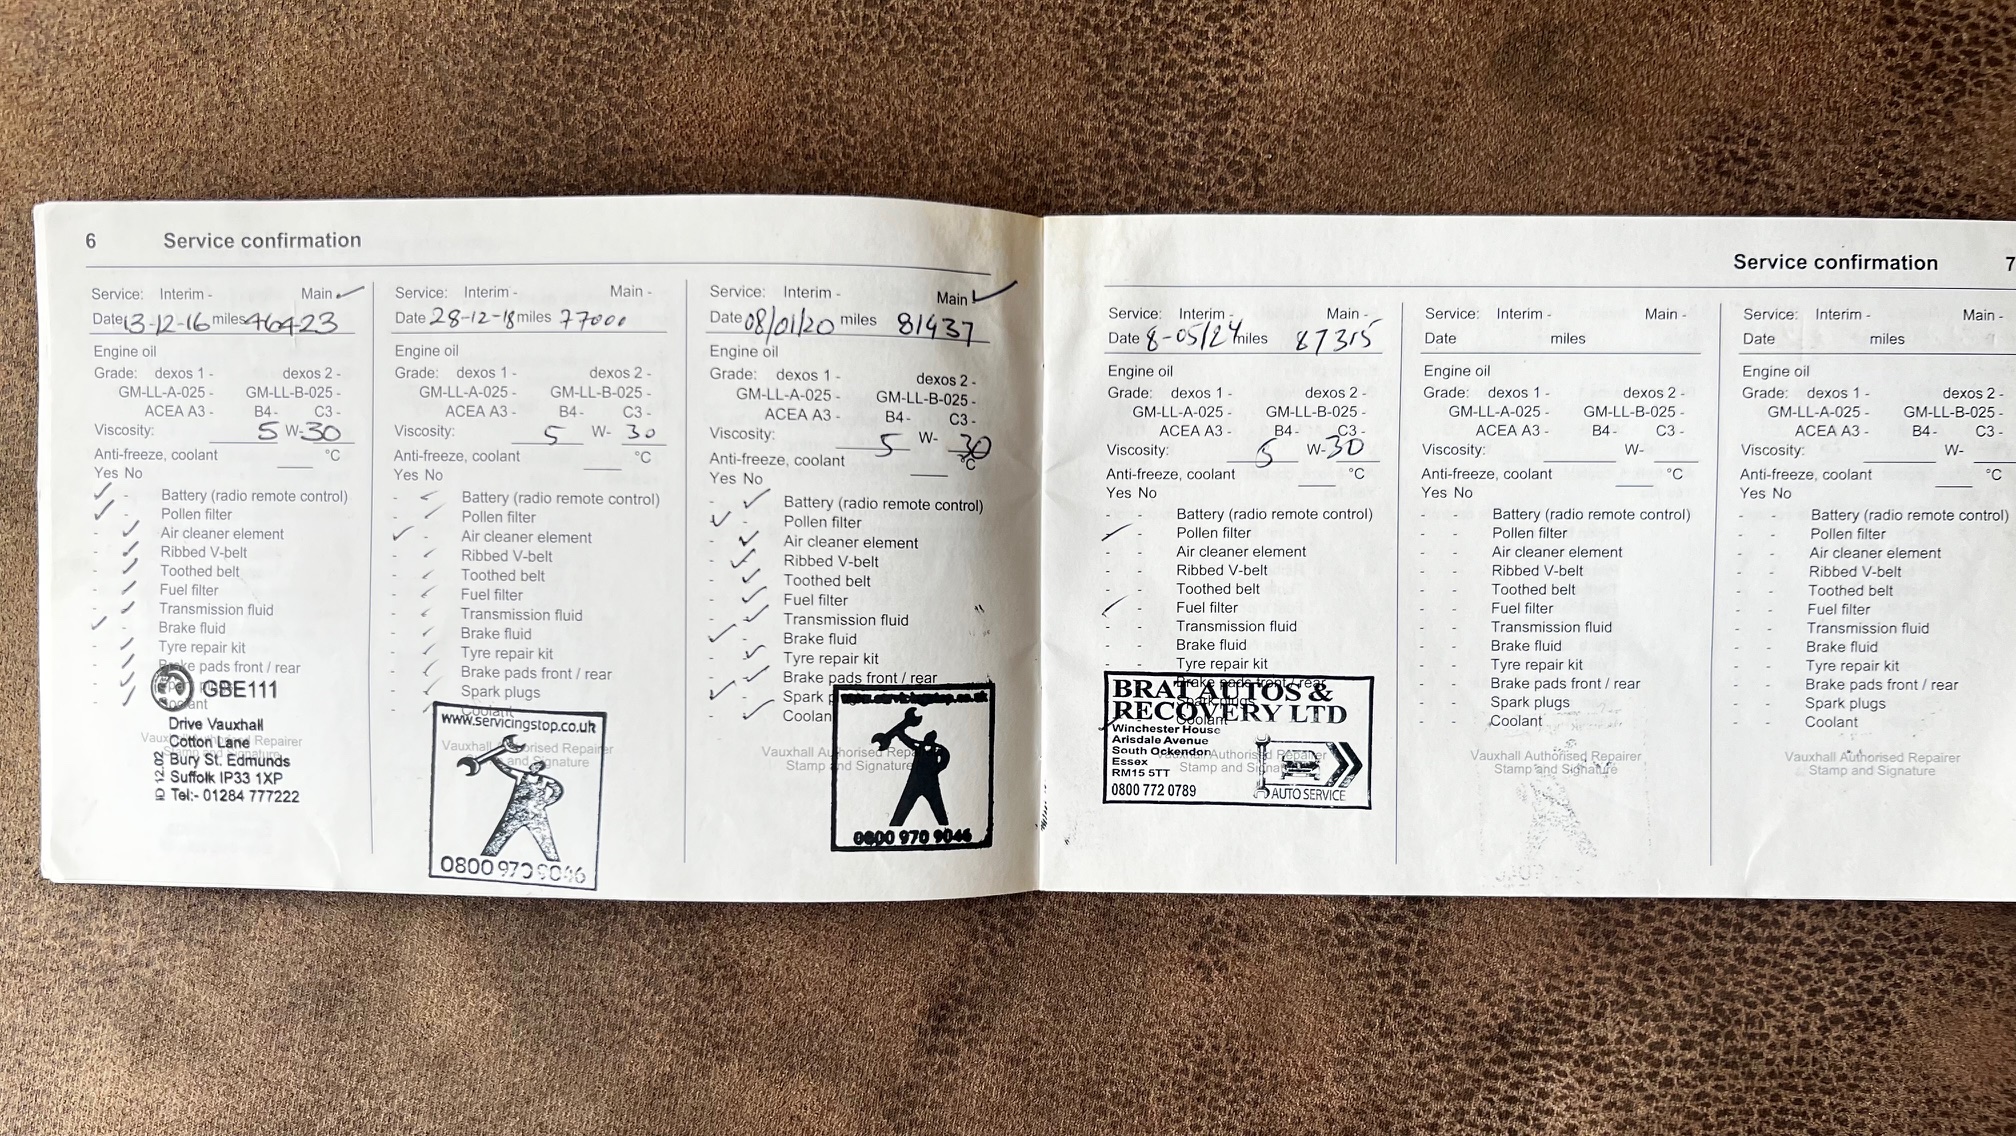 6 Service confirmation
Service: Interim - Main -
Date 13-12-16 miles 46423
Engine oil
Grade: dexos 1 - dexos 2 -
GM-LL-A-025 - GM-LL-B-025 -
ACEA A3 - B4 - C3 -
Viscosity: 5 W-30
Anti-freeze, coolant °C
Yes No
Battery (radio remote control)
Pollen filter
Air cleaner element
Ribbed V-belt
Toothed belt
Fuel filter
Transmission fluid
Brake fluid
Tyre repair kit
Brake pads front / rear
GBE111
Drive Vauxhall
Cotton Lane
Bury St. Edmunds
Suffolk IP33 1XP
Tel:- 01284 777222
Service: Interim - Main -
Date 28-12-18 miles 77000
Engine oil
Grade: dexos 1 - dexos 2 -
GM-LL-A-025 - GM-LL-B-025 -
ACEA A3 - B4 - C3 -
Viscosity: 5 W- 30
Anti-freeze, coolant °C
Yes No
- Battery (radio remote control)
- Pollen filter
- Air cleaner element
- Ribbed V-belt
- Toothed belt
- Fuel filter
- Transmission fluid
- Brake fluid
- Tyre repair kit
- Brake pads front / rear
- Spark plugs
- Coolant
www.servicingstop.co.uk
Vauxhall Authorised Repairer
and Signature
0800 970 9046
Service: Interim - Main -
Date 08/01/20 miles 81437
Engine oil
Grade: dexos 1 - dexos 2 -
GM-LL-A-025 - GM-LL-B-025 -
ACEA A3 - B4 - C3 -
Viscosity: 5 W- 30
Anti-freeze, coolant °C
Yes No
- Battery (radio remote control)
- Pollen filter
- Air cleaner element
- Ribbed V-belt
- Toothed belt
- Fuel filter
- Transmission fluid
- Brake fluid
- Tyre repair kit
- Brake pads front / rear
- Spark
- Coolan
www.servicingstop.co.uk
Vauxhall Authorised Repa
Stamp and Signature
0800 970 9046
Service confirmation 7
Service: Interim - Main -
Date 8-05/24 miles 87315
Engine oil
Grade: dexos 1 - dexos 2 -
GM-LL-A-025 - GM-LL-B-025 -
ACEA A3 - B4 - C3 -
Viscosity: 5 W-30
Anti-freeze, coolant °C
Yes No
- - Battery (radio remote control)
- Pollen filter
- - Air cleaner element
- - Ribbed V-belt
- - Toothed belt
- Fuel filter
- - Transmission fluid
- - Brake fluid
- - Tyre repair kit
Brake pads front / rear
Spark plugs
Coolant
BRAT AUTOS &
RECOVERY LTD
Winchester House
Arisdale Avenue
South Ockendon
Essex
RM15 5TT
0800 772 0789
AUTO SERVICE
Authorised Repairer
Stamp and Signa
Service: Interim - Main -
Date miles
Engine oil
Grade: dexos 1 - dexos 2 -
GM-LL-A-025 - GM-LL-B-025 -
ACEA A3 - B4 - C3 -
Viscosity: W-
Anti-freeze, coolant °C
Yes No
- - Battery (radio remote control)
- - Pollen filter
- - Air cleaner element
- - Ribbed V-belt
- - Toothed belt
- - Fuel filter
- - Transmission fluid
- - Brake fluid
- - Tyre repair kit
- - Brake pads front / rear
- - Spark plugs
- - Coolant
Vauxhall Authorised Repairer
Stamp and Signature
Service: Interim - Main -
Date miles
Engine oil
Grade: dexos 1 - dexos 2 -
GM-LL-A-025 - GM-LL-B-025 -
ACEA A3 - B4 - C3 -
Viscosity: W-
Anti-freeze, coolant °C
Yes No
- - Battery (radio remote control)
- - Pollen filter
- - Air cleaner element
- - Ribbed V-belt
- - Toothed belt
- - Fuel filter
- - Transmission fluid
- - Brake fluid
- - Tyre repair kit
- - Brake pads front / rear
- - Spark plugs
- - Coolant
Vauxhall Authorised Repairer
Stamp and Signature